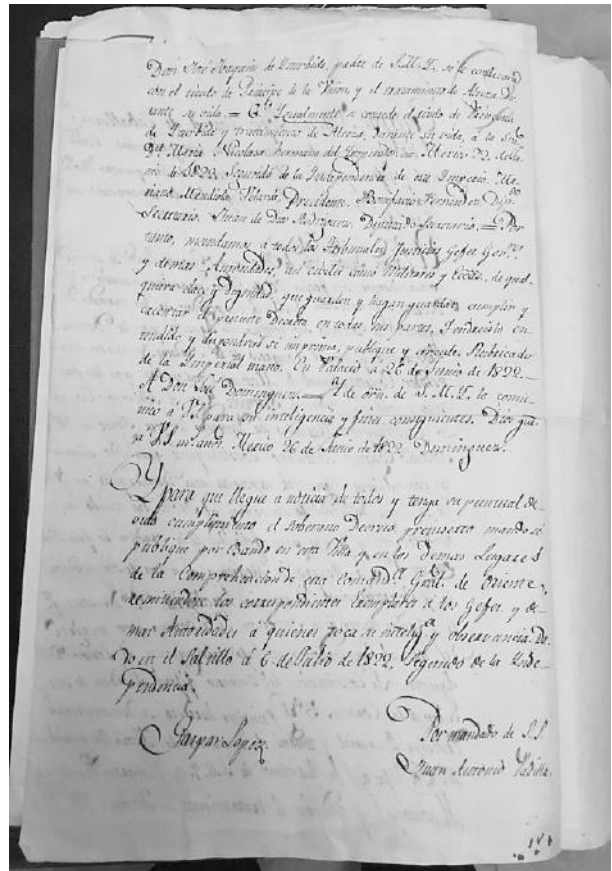 Don José Joaquin de Yturbide, padre de S.M.Y. se le condecora
con el titulo de Principe de la Union y el tratamiento de Alteza du-
rante su vida. = 6.º Ygualmente se concede el titulo de Princesa
de Yturbide y tratamiento de Alteza, durante su vida, á la Sra.
Dª. Maria Nicolasa hermana del Emperador. = Mexico 22 de Ju-
nio de 1822, Segundo de la Yndependencia de este Imperio. Ma-
riano Mendiola Velarde, Presidente. Bonifacio Fernandez Dipdo
Secretario. Juan de Dios Rodriguez, Diputado Secretario. = Por
tanto, mandamos á todos los Tribunales Justicias Gefes, Gov.res
y demas Autoridades, asi civiles como Militares y Eccas. de qual-
quiera clase y dignidad que guarden y hagan guardar, cumplir y
executar el presente Decreto, en todas sus partes. Tendreislo en-
tendido y dispondreis se imprima, publique y circule. Rubricado
de la Ymperial mano. En Palacio á 26 de Junio de 1822. =
A Don José Dominguez. = Y de orn. de S.M.Y. lo comu-
nico á V.S. para su inteligencia y fines consiguientes. Dios gue.
á V.S. ms. años. Mexico 26 de Junio de 1822. Dominguez.
Y para que llegue á noticia de todos y tenga su puntual de-
vido cumplimiento el Soberano Decreto preinserto mando se
publique por Bando en esta Villa y en los demas Lugares
de la Comprehencion de esta Comandª. Gral. de Oriente,
remitiendose los correspondientes Exemplares á los Gefes y de-
mas Autoridades á quienes toca su inteligª. y observancia. Da-
do en el Saltillo á 6 de Julio de 1822. Segundo de la Ynde-
pendencia.
Gaspar Lopez.
Por mandado de S.S.
Juan Antonio Padilla.